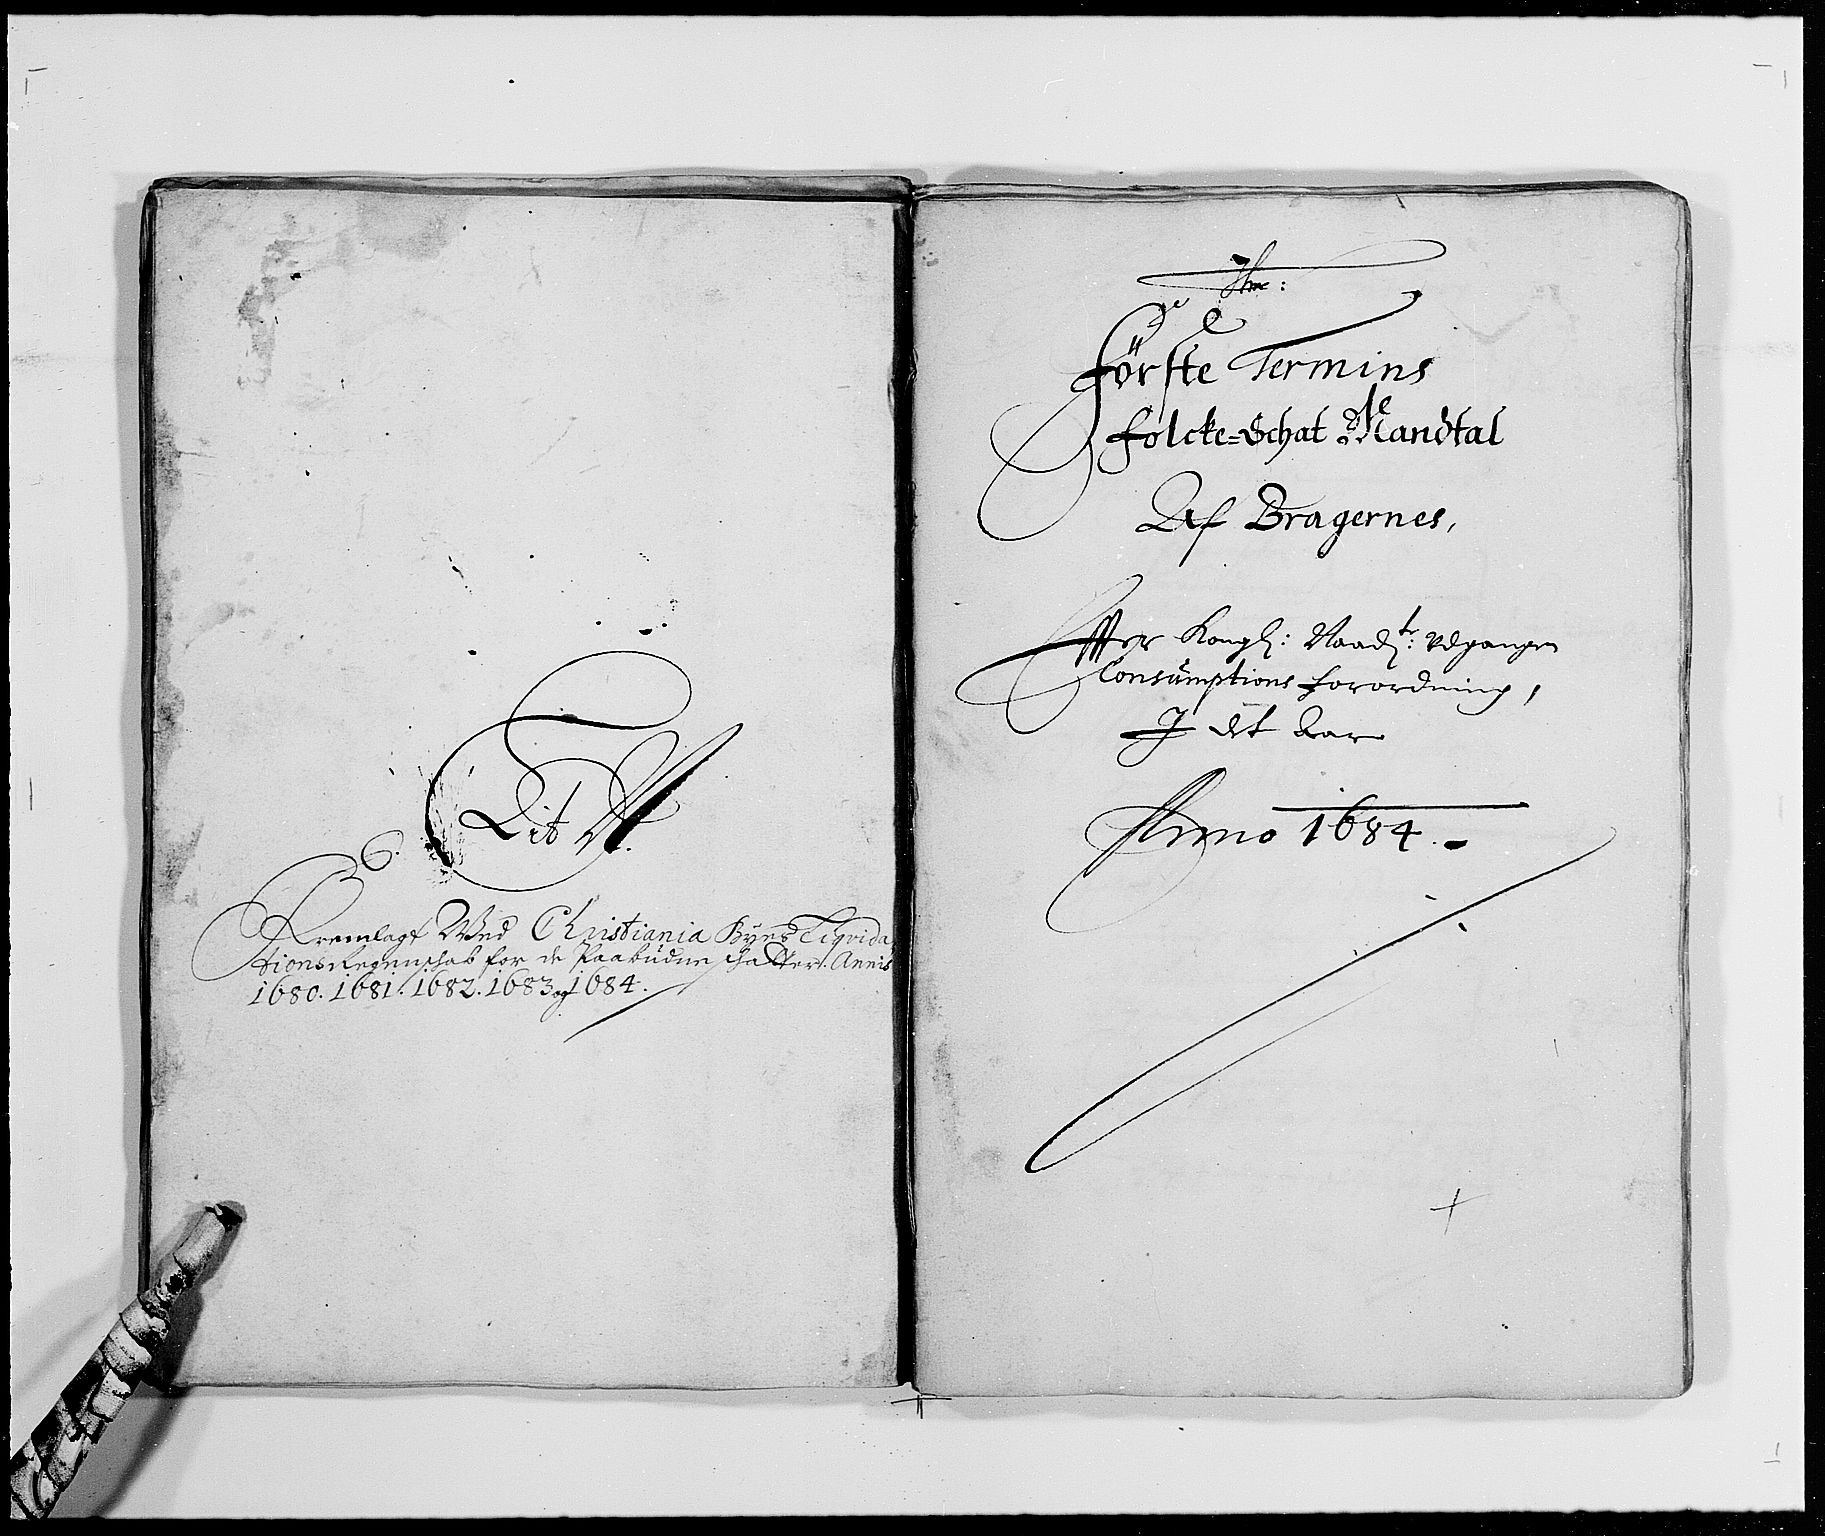 Lit A.
6.
Fremlagt Wed Christiania Byes Liqvida
tions Regenschab for de Paabudne schatter. Annis
1680. 1681. 1682. 1683 og 1684.
Förste Termins
Folcke=Schat Mandtal
Af Bragernes,
Effter Kongl: Naad<sup>s</sup>: Udgangne
Consumptions forordning,
I det Aar
Anno 1684.